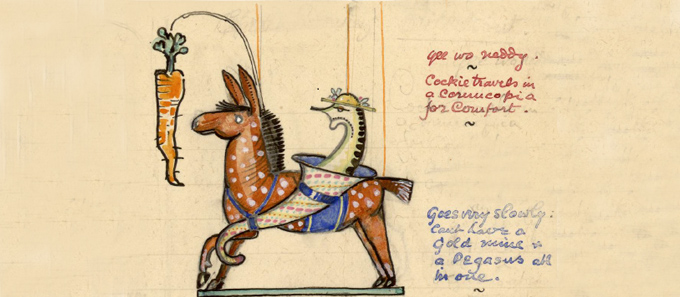 gee wo neddy.
~
Cockie travels in
a Cornucopia
for Comfort.
~
Goes very slowly:
cant have a
gold mine &
a Pegasus all
in one.
~